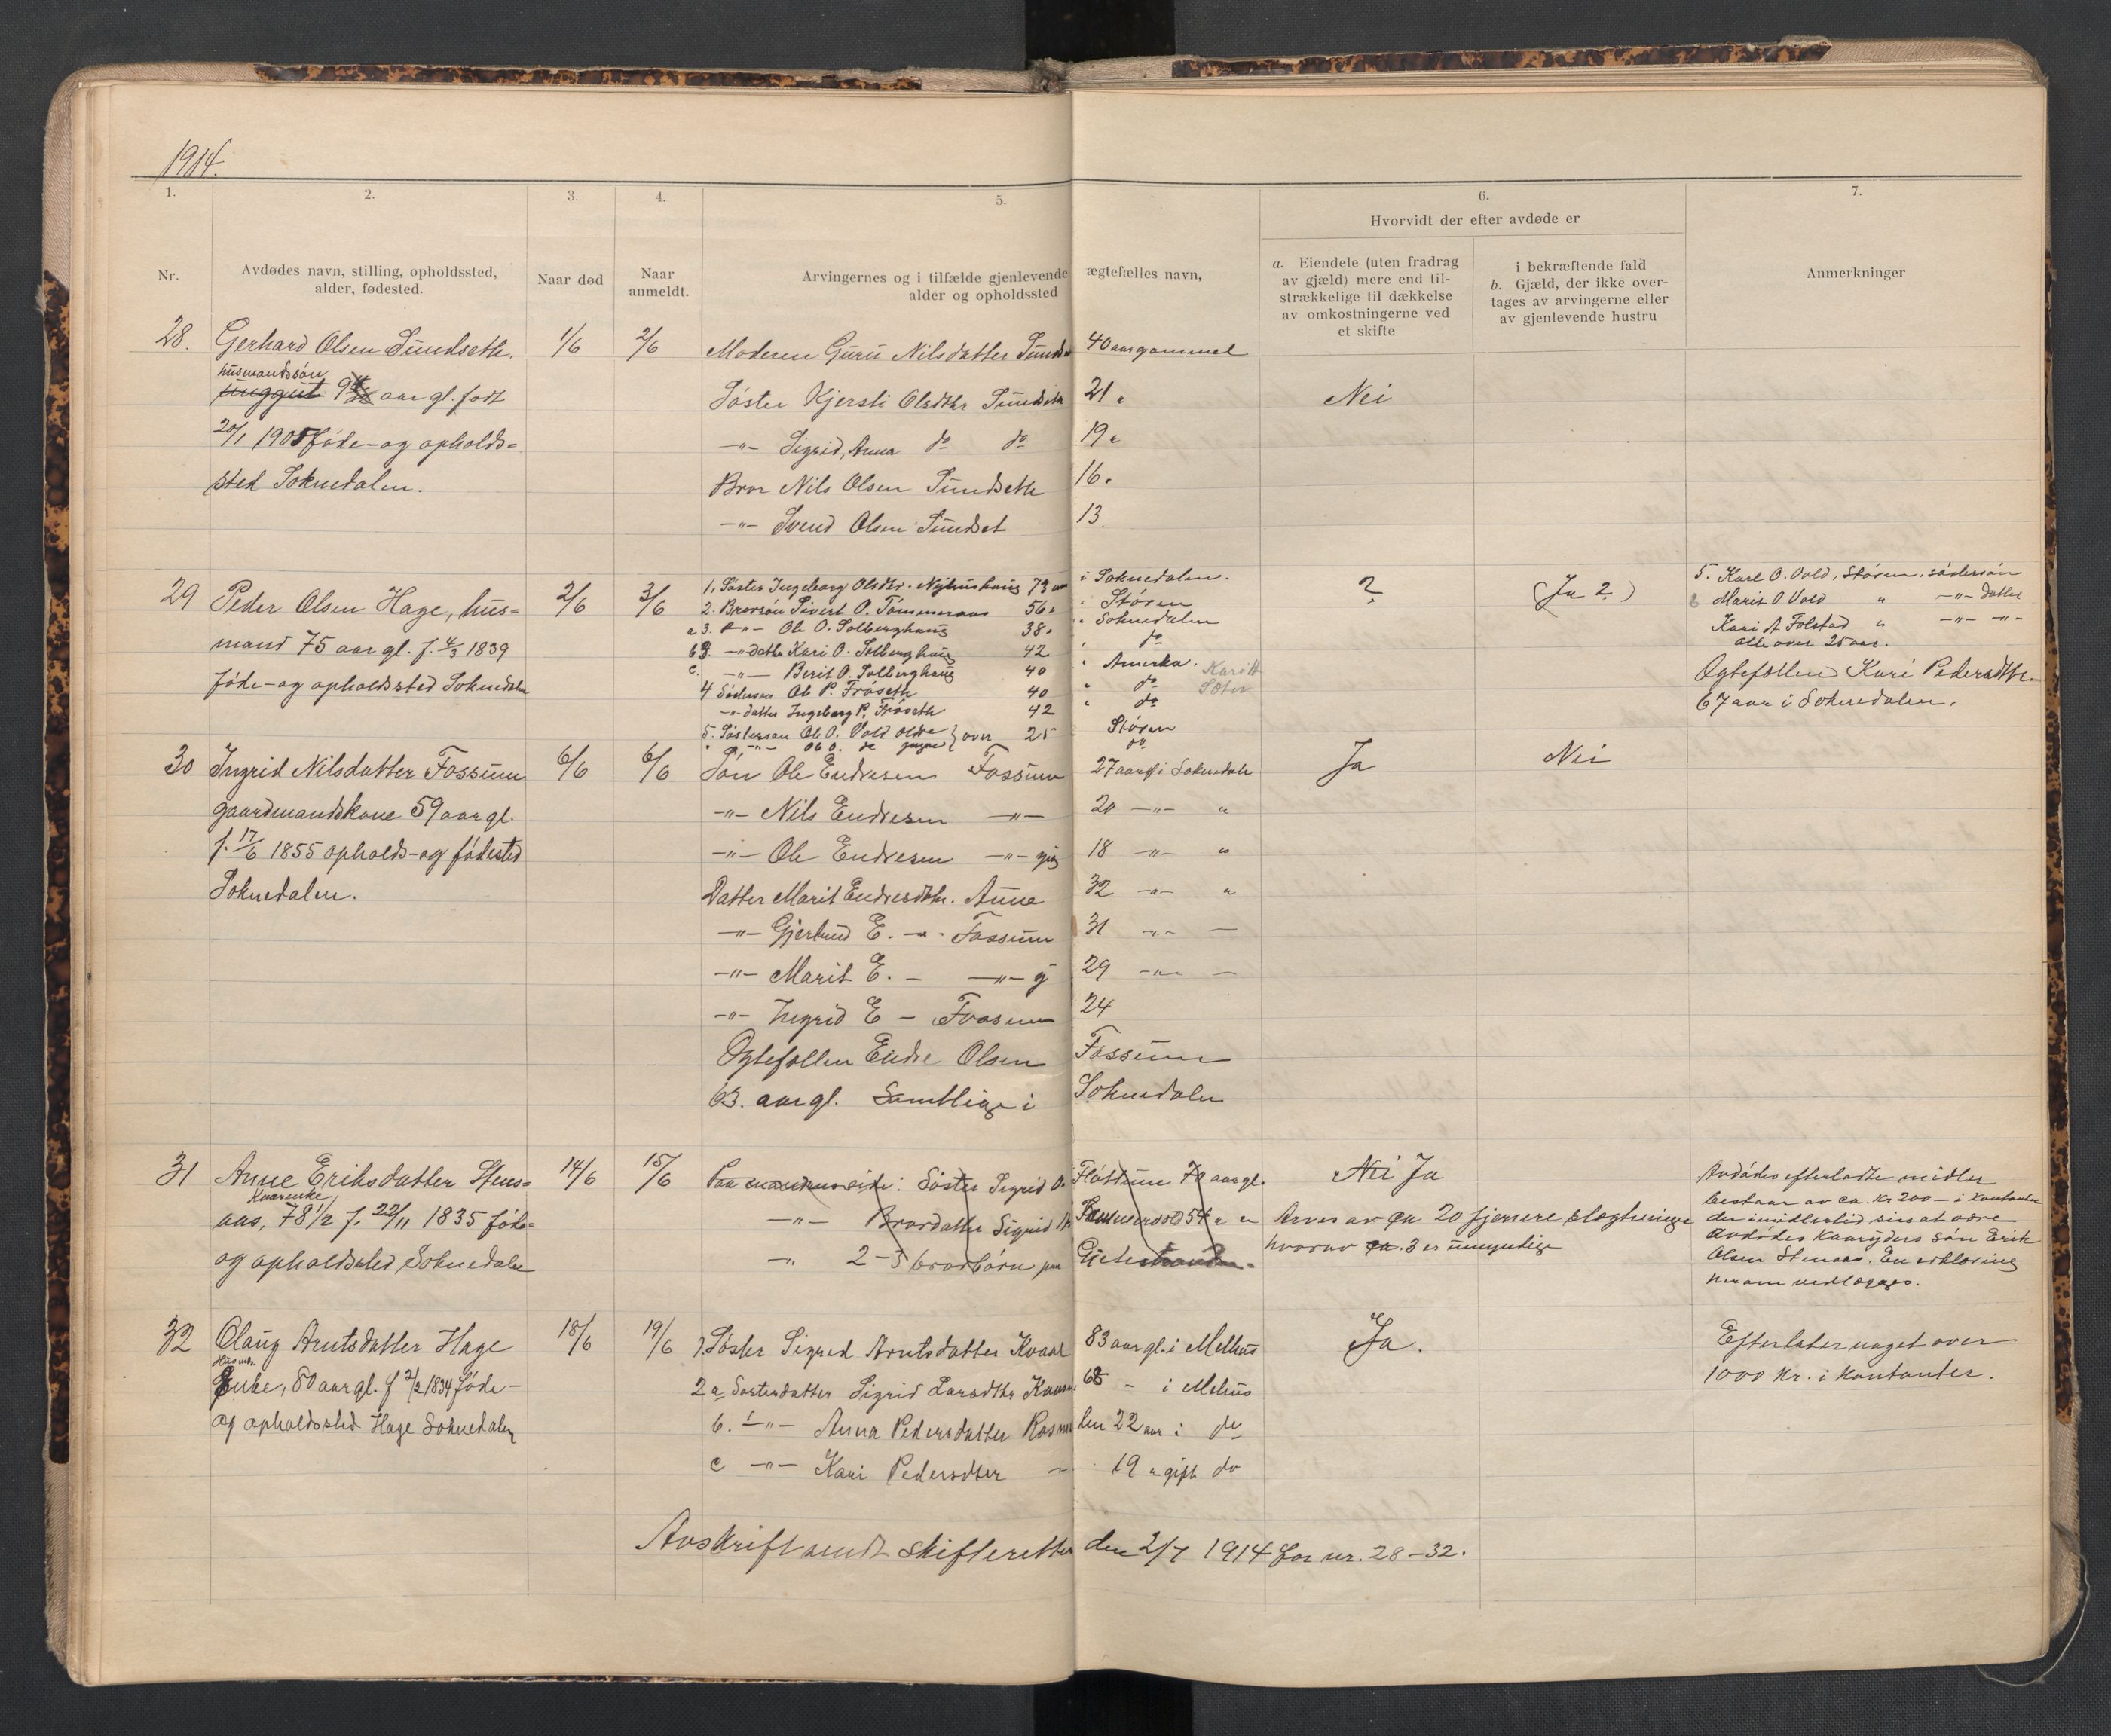 1914.
1. 2. 3. 4. 5. 6. 7.
Hvorvidt der efter avdøde er
Nr.
Avdødes navn, stilling, opholdssted,
alder, fødested.
Naar død
Naar
anmeldt.
Arvingernes og i tilfælde gjenlevende ægtefælles navn,
alder og opholdssted
a. Eiendele (uten fradrag
av gjæld) mere end til-
strækkelige til dækkelse
av omkostningerne ved
et skifte
i bekræftende fald
b. Gjæld, der ikke over-
tages av arvingerne eller
av gjenlevende hustru
Anmerkninger
28. Gerhard Olsen Sundseth. 1/6 2/6 Moderen Guru Nilsdatter 40 aar gammel
husmandssøn
unggut 9 aar gl. født
Søster Kjersti Olsdtr Sundseth 21 " Nei
20/1 1905 føde- og opholds=
-"- Sigrid, Anna do do 19 "
sted Soknedalen.
Bror Nils Olsen Sundseth 16 "
-"- Svend Olsen Sundset 13
29 Peder Olsen Hage, hus= 2/6 3/6
mand 75 aar gl. f. 4/3 1839
føde- og opholdssted Soknedalen
1, Søster Ingeborg Olsdtr. Nyhushaug 73 aar i Soknedalen.
2. Brorsøn Sivert O. Tømmeraas 56 " " Støren
a 3. -"- Ole O. Solberghaug 38 " " Soknedalen
b 3. -"- datter Kari O. Solberghaug 42 " do
c. -"- Berit O. Solberghaug 40 " Amerka.
4 Ole P. Frøseth 40 " do
-"- datter Ingeborg P. Frøseth 42 " do
5. Søstersøn Ole O. Vold eldre } over 25 Støren
" -"- Ole O. do yngre do
? (Ja ?)
5. Karl O. Vold, Støren, søstersøn
Marit O Vold " -"- datter
Kari A Folstad " -"- -"-
alle over 25 aar.
Ægtefællen Kari Pedersdtr.
67 aar i Soknedalen.
30 Ingrid Nilsdatter Fossum 6/6 6/6 Søn Ole Endresen Fossum 27 aar gl i Soknedalen Ja Nei
gaardmandskone 59 aar gl.
-"- Nils Endresen -"- 20 -"- "
f. 17/6 1855 opholds- og fødested
-"- Ole Endresen -"- yng 18 -"- "
Soknedalen.
Datter Marit Endresdtr. Aune 32 -"- "
-"- Gjertrud E. -"- Fossum 31 -"- -
-"- Marit E. - -"- y 29 -"- -
-"- Ingrid E - Fossum 24
Ægtefællen Endre Olsen Fossum
63. aar gl. Samtlige i Soknedalen
31 Anne Eriksdatter Stens= 14/6 15/6
Kaarenke
aas, 78 1/2 f. 22/11 1835 føde=
og opholdssted Soknedalen
Søster Sigrid O. Fløttum 70 aar gl. Nei Ja
-"- Brordatter Sigrid 54 " "
-"- 2-3 brorbørn paa
Arves av ca 20 fjernere slegtninger
hvorav ca. 3 er umyndige
Avdødes efterladte midler
bestaar av ca. kr 200 - i kontanter
der imidlertid sies at være
avdødes Kaaryders søn Erik
Olsen Stenaas. En erklæring
herom vedlægges.
32 Olaug Arntsdatter Hage 18/6 19/6 1. Søster Sigrid Arntsdatter Kvaal 83 aar gl. i Melhus Ja.
Husm.
Enke, 80 aar gl. f 2/2 1834 føde-
og opholdssted Hage Soknedalen
2 a Søsterdatter Sigrid Larsdtr 68 - i Melhus
b. -"- Anna Pedersdatter 22 aar i do
c -"- Kari Pedersdter - 19 " gift do
Efterlater noget over
1000 Kr. i kontanter.
Avskrift sendt skifteretten den 2/7 1914 for nr. 28-32.